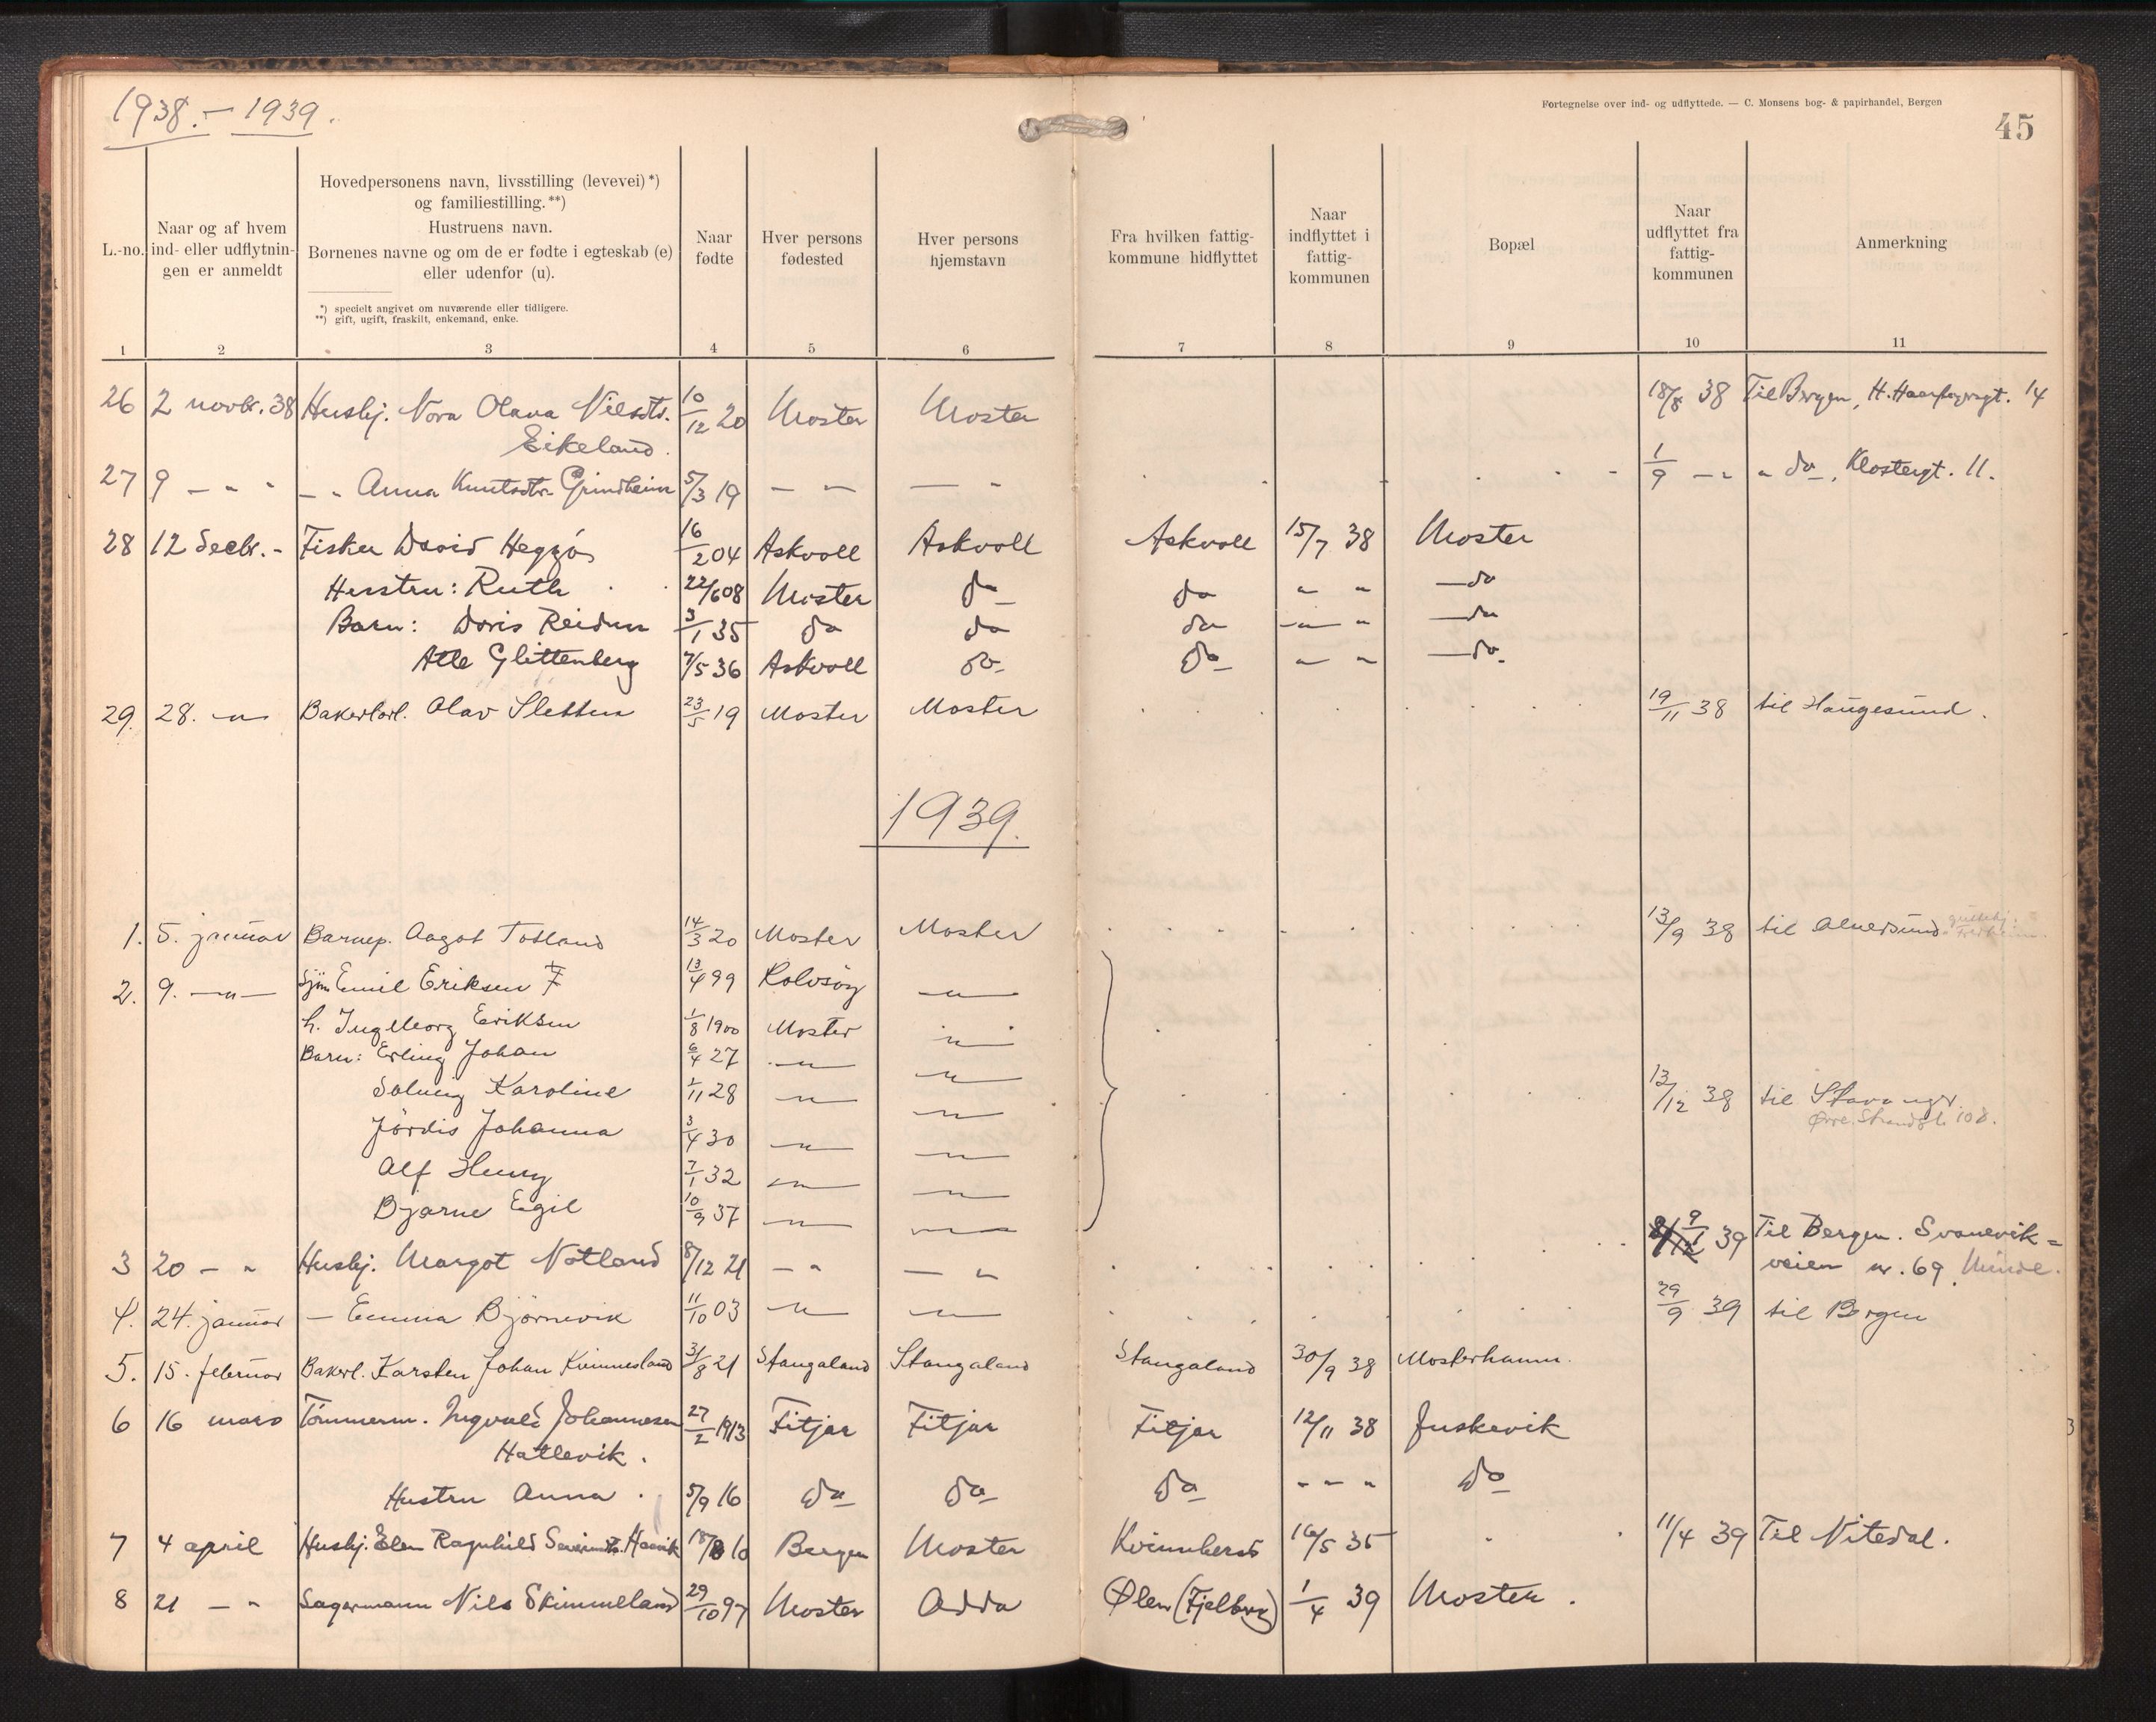 1938. - 1939.
Fortegnelse over ind- og udflyttede. — C. Monsens bog- & papirhandel, Bergen
45
L.-no.
Naar og af hvem
ind- eller udflytnin-
gen er anmeldt
Hovedpersonens navn, livsstilling (levevei)*)
og familiestilling.**)
Hustruens navn.
Børnenes navne og om de er fødte i egteskab (e)
eller udenfor (u).
*) specielt angivet om nuværende eller tidligere.
**) gift, ugift, fraskilt, enkemand, enke.
Naar
fødte
Hver persons
fødested
Hver persons
hjemstavn
Fra hvilken fattig-
kommune hidflyttet
Naar
indflyttet i
fattig-
kommunen
Bopæl
Naar
udflyttet fra
fattig-
kommunen
Anmerkning
1 2 3 4 5 6 7 8 9 10 11
26 2 novbr. 38 Hushj. Nora Olava Nilsdtr. 10/12 20 Moster Moster 18/8 38 Til Bergen, H. Haarfagregt. 14
Eikeland.
27 9 — " " — " Anna Knutsdtr. Grindheim 5/3 19 — " — " 1/9 — " " do, Klostergt. 11.
28 12 decbr. - Fisker David Heggøs 16/2 04 Askvoll Askvoll Askvoll 15/7 38 Moster
Hustru: Ruth 22/6 08 Moster do do " " — do
Barn: Doris Reidun 3/1 35 do do do — " " — do
Atle Glittenberg 7/5 36 Askvoll do do " " — do.
29. 28. — " — Bakerlærl. Olav Sletten 23/5 19 Moster Moster 19/11 38 til Haugesund.
1939.
1. 5. januar Barnep. Aagot Totland 14/3 20 Moster Moster 13/9 38 til Alversund
2. 9. — " — Sjøm Emil Eriksen 13/4 99 Rolvsøy — " —
h. Ingeborg Eriksen 1/8 1900 Moster — " —
Barn: Erling Johan 6/4 27 — " — — " —
Solveig Karoline 1/11 28 — " — — " — 13/12 38 til Stavanger
Øvre Strandgt. 108.
Jördis Johanna 3/4 30 — " — — " —
Alf Henry 7/1 32 — " — — " —
Bjarne Egil 10/9 37 — " — — " —
3 20 — " Hushj. Margot Notland 8/12 21 — " — " 9/1 39 Til Bergen. Svanevik=
veien nr. 69, Minde.
4. 24. januar — Emma Björnevik 11/10 03 — " — — " — 29/9 39 til Bergen
5. 15. februar Bakerl. Karsten Johan Kvinnesland 31/8 21 Stangaland Stangaland Stangaland 30/9 38 Mosterhamn.
6 16 mars Tömmerm. Ingvald Johannesen 27/2 1913 Fitjar Fitjar Fitjar 12/11 38 Juskevik
Hatlevik.
Hustru Anna. 5/9 16 do do do - - " do
7 4 april Hushj. Elen Ragnhild Severinsdtr. Haavik 18/8 10 Bergen Moster Kvinnherad 16/5 35 11/4 39 Til Nitedal.
8 21 — " Sagermann Nils Skimmeland 29/10 97 Moster Odda Ølen (Fjelberg) 1/4 39 Moster.